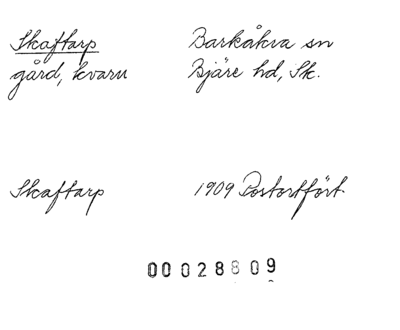 Skaftarp Barkåkra sn
gård, kvarn Bjäre hd, Sk.
Skaftarp 1909 Postortfört.
00028809